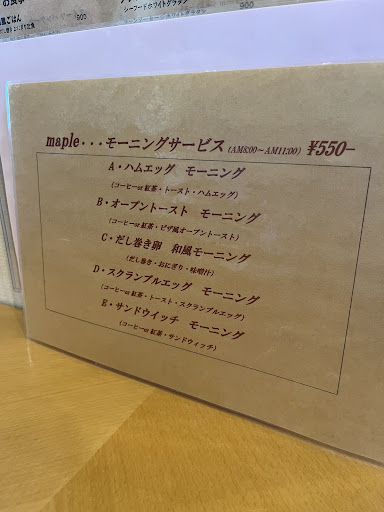 の食事
900
シーフードホワイトグラタン
風ごはん
900
maple・・・モーニングサービス (AM8:00～AM11:00) ¥550-
A・ハムエッグ モーニング
(コーヒーor紅茶・トースト・ハムエッグ)
B・オープントースト モーニング
(コーヒーor紅茶・ピザ風オープントースト)
C・だし巻き卵 和風モーニング
(だし巻き・おにぎり・味噌汁)
D・スクランブルエッグ モーニング
(コーヒーor紅茶・トースト・スクランブルエッグ)
E・サンドウイッチ モーニング
(コーヒーor紅茶・サンドウィッチ)